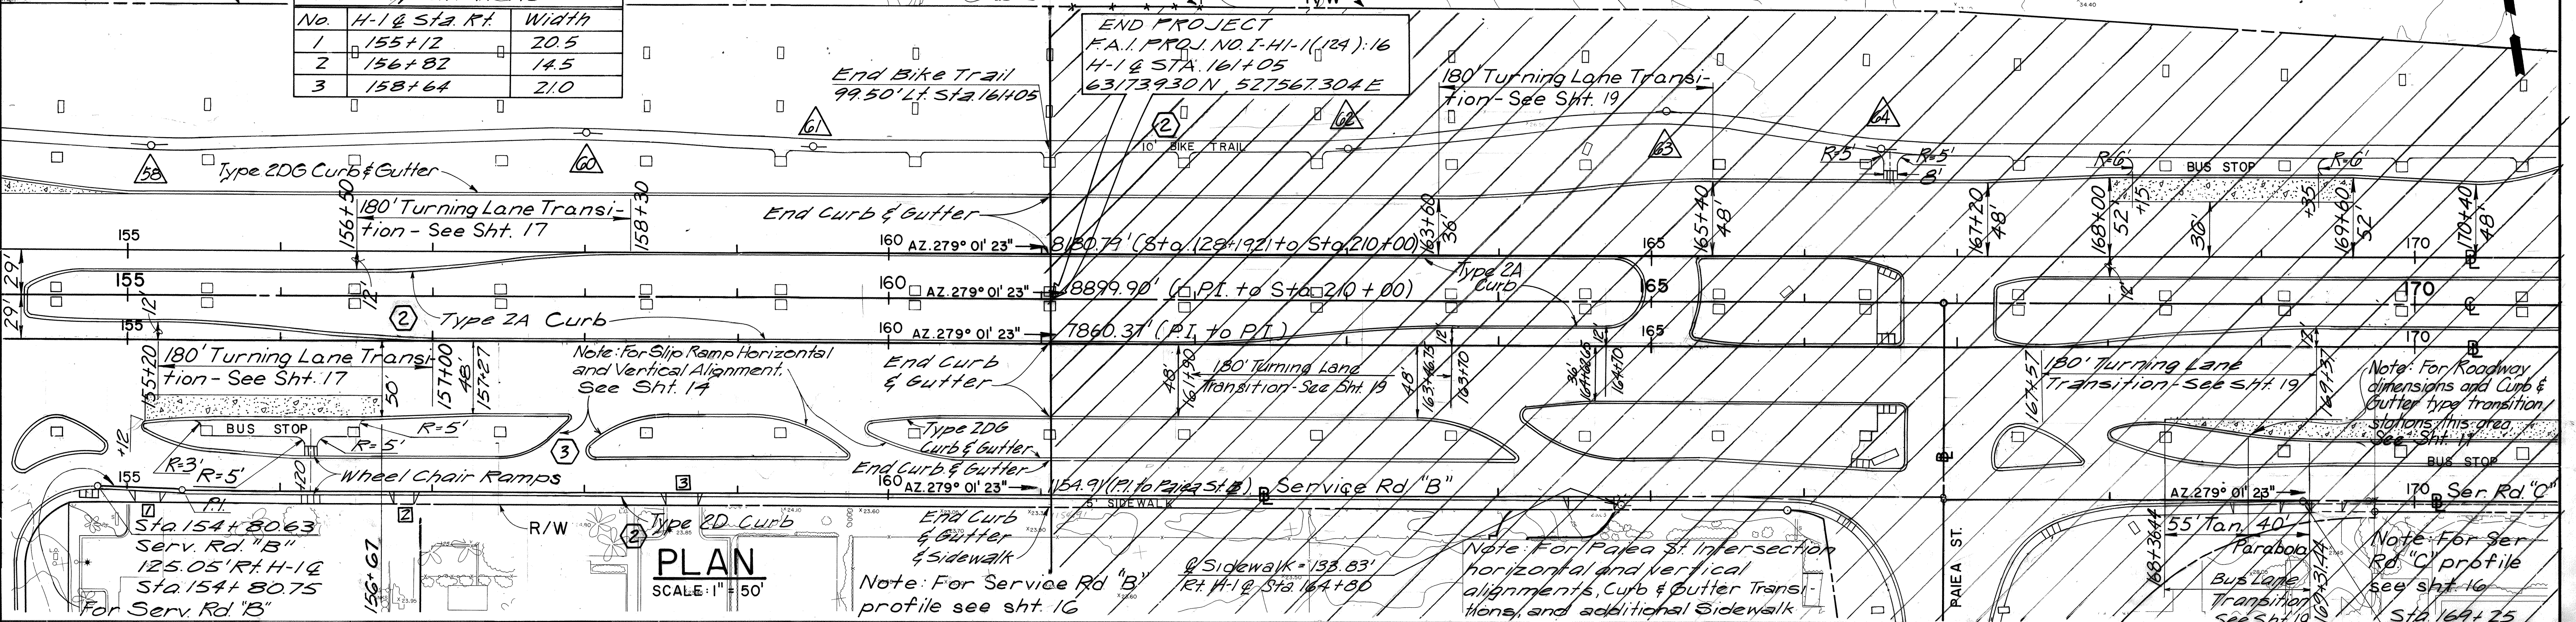 No. H-1 ℄ Sta. Rt. Width
1 155+12 20.5
2 156+82 14.5
3 158+64 21.0
End Bike Trail
99.50' Lt. Sta. 161+05
END PROJECT
F.A.I. PROJ. NO. I-H1-1(124):16
H-1 ℄ STA. 161+05
63173.930 N 527567.304 E
180' Turning Lane Transi-
tion - See Sht. 19
58
60
61
2
62
63
64
10' BIKE TRAIL
Type 2DG Curb & Gutter
R=5'
R=5'
8'
R=6'
BUS STOP
R=6'
156+50
180' Turning Lane Transi-
tion - See Sht. 17
158+30
End Curb & Gutter
163+60
36'
165+40
48'
167+20
48'
168+00
52'
+15
36'
+35
169+60
52'
170+40
48'
155
160 AZ. 279° 01' 23" 8180.79' (Sta. 128+19.21 to Sta. 210+00)
165
170
29'
29'
155
12'
12'
160 AZ. 279° 01' 23" 8899.90' (P.I. to Sta. 210+00)
Type 2A
Curb
165
12'
170
2
Type 2A Curb
155
160 AZ. 279° 01' 23" 7860.37' (P.I. to P.I.)
165
170
155+20
180' Turning Lane Transi-
tion - See Sht. 17
50'
157+00
48'
157+27
Note: For Slip Ramp Horizontal
and Vertical Alignment,
See Sht. 14
End Curb
& Gutter
48'
161+90
180' Turning Lane
Transition - See Sht. 19
48'
163+46.75
12'
163+70
36'
12'
164+70
167+57
180' Turning Lane
Transition - See Sht. 19
12'
169+37
Note: For Roadway
dimensions and Curb &
Gutter type transition
stations this area,
See Sht. 17
+12
BUS STOP
R=5'
R=5'
R=3'
R=5'
+20
Wheel Chair Ramps
3
Type 2DG
Curb & Gutter
End Curb & Gutter
BUS STOP
155
P.I.
1
2
3
160 AZ. 279° 01' 23" 1154.91' (P.I. to Paiea St. ℄) Service Rd "B"
5' SIDEWALK
AZ. 279° 01' 23" 170 Ser. Rd. "C"
Sta. 154+80.63
Serv. Rd. "B"
125.05' Rt. H-1 ℄
Sta. 154+80.75
For Serv. Rd. "B"
156+67
R/W
2
Type 2D Curb
PLAN
SCALE: 1" = 50'
End Curb
& Gutter
& Sidewalk
Note: For Service Rd "B"
profile see sht. 16
℄ Sidewalk = 133.83'
Rt. H-1 ℄ Sta. 164+80
Note: For Paiea St. Intersection
horizontal and vertical
alignments, Curb & Gutter Transi-
tions, and additional Sidewalk
PAIEA ST.
168+36.44
55' Tan.
40'
Parabola
Bus Lane
Transition
See Sht 19
169+31.44
Note: For Ser
Rd. "C" profile
see sht. 16
Sta. 169+25